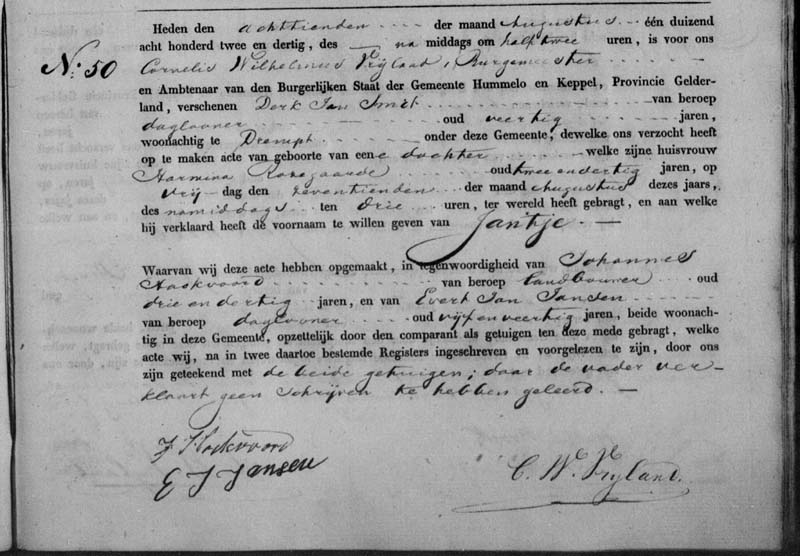 N.o 50
Heden den achttienden der maand Augustus één duizend
acht honderd twee en dertig, des na middags om half twee uren, is voor ons
Cornelis Wilhelmus Vrijland, Burgemeester
en Ambtenaar van den Burgerlijken Staat der Gemeente Hummelo en Keppel, Provincie Gelder-
land, verschenen Derk Jan Smit van beroep
daglooner oud veertig jaren,
woonachtig te Drempt onder deze Gemeente, dewelke ons verzocht heeft
op te maken acte van geboorte van eene dochter welke zijne huisvrouw
Harmina Rosegaarde oud twee en dertig jaren, op
vrij-dag den zeventienden der maand Augustus dezes jaars,
des namiddags ten drie uren, ter wereld heeft gebragt, en aan welke
hij verklaard heeft de voornaam te willen geven van Jantje. —
Waarvan wij deze acte hebben opgemaakt, in tegenwoordigheid van Johannes
Haskvoord van beroep landbouwer oud
drie en dertig jaren, en van Evert Jan Jansen
van beroep daglooner oud vijf en veertig jaren, beide woonach-
tig in deze Gemeente, opzettelijk door den comparant als getuigen ten deze mede gebragt, welke
acte wij, na in twee daartoe bestemde Registers ingeschreven en voorgelezen te zijn, door ons
zijn geteekend met de beide getuigen; daar de vader ver-
klaart geen schrijven te hebben geleerd. —
J Haskvoord
E J Jansen
C. W. Vryland.